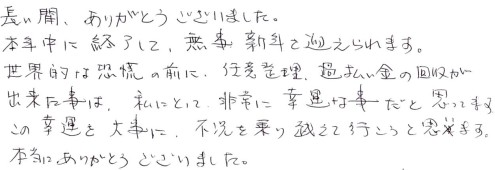 長い間、ありがとうございました。
本年中に終了して、無事新年を迎えられます。
世界的な恐慌の前に、任意整理、過払い金の回収が
出来た事は、私にとって、非常に幸運な事だと思ってます。
この幸運を大事に、不況を乗り越えて行こうと思います。
本当にありがとうございました。